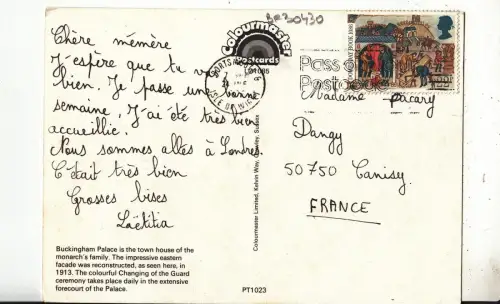 BR30430
Chère mémère
J'espère que tu v
bien. Je passe une bonne
semaine. J'ai été très bien
accueillie.
Nous sommes allés à Londres.
C'était très bien
Grosses bises
Laëtitia
Buckingham Palace is the town house of the
monarch's family. The impressive eastern
facade was reconstructed, as seen here, in
1913. The colourful Changing of the Guard
ceremony takes place daily in the extensive
forecourt of the Palace.
Colourmaster
Postcards
PORTSM
ISLE OF WIGHT
Colourmaster Limited, Kelvin Way, Crawley, Sussex
PT1023
Pass o
Postcode
Madame Pacary
Dangy
50750 Canisy
FRANCE